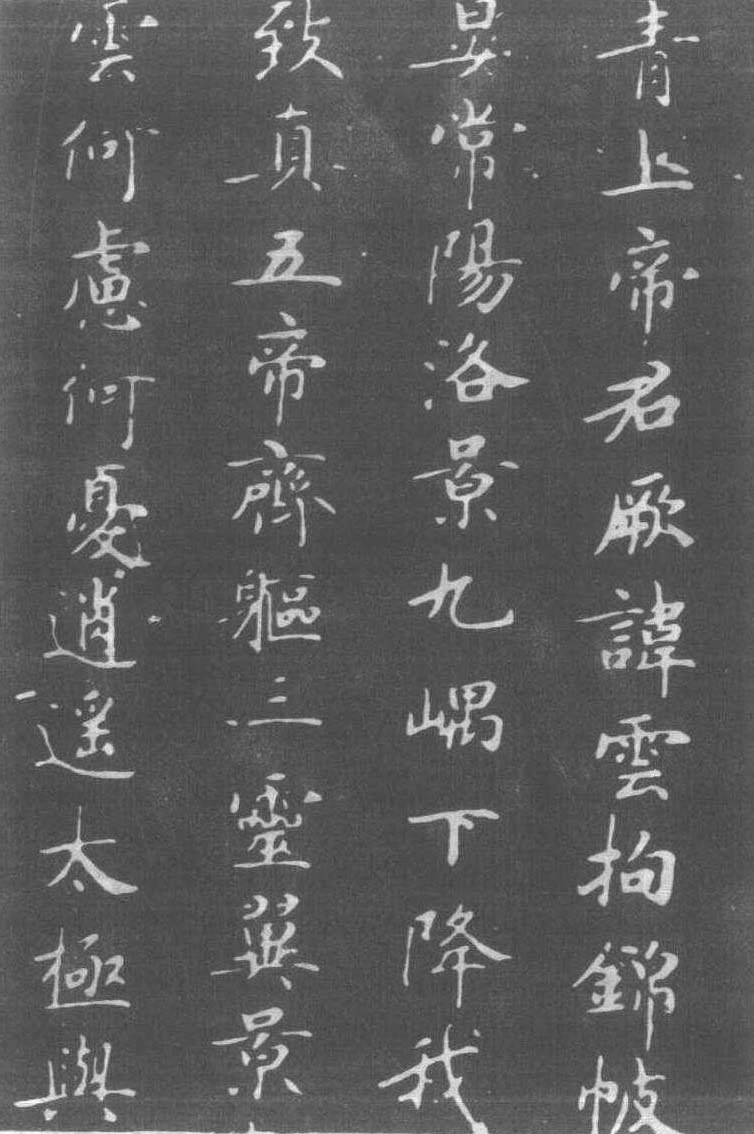 青上帝君厥諱雲拘錦帔
常陽洛景九嵎下降我
致真五帝齊軀三靈翼景
雲何慮何憂逍遥太極與